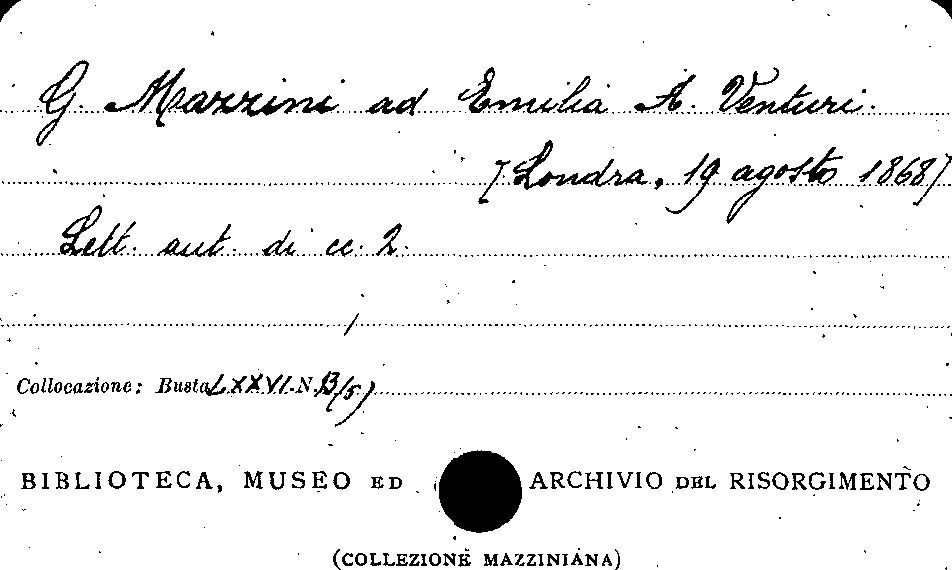 G. Mazzini ad Emilia A. Venturi.
[Londra, 19 agosto 1868]
Lett. aut. di cc. 2.
Collocazione: Busta LXXVI N. 13/5)
BIBLIOTECA, MUSEO ED ARCHIVIO DEL RISORGIMENTO
(COLLEZIONE MAZZINIANA)